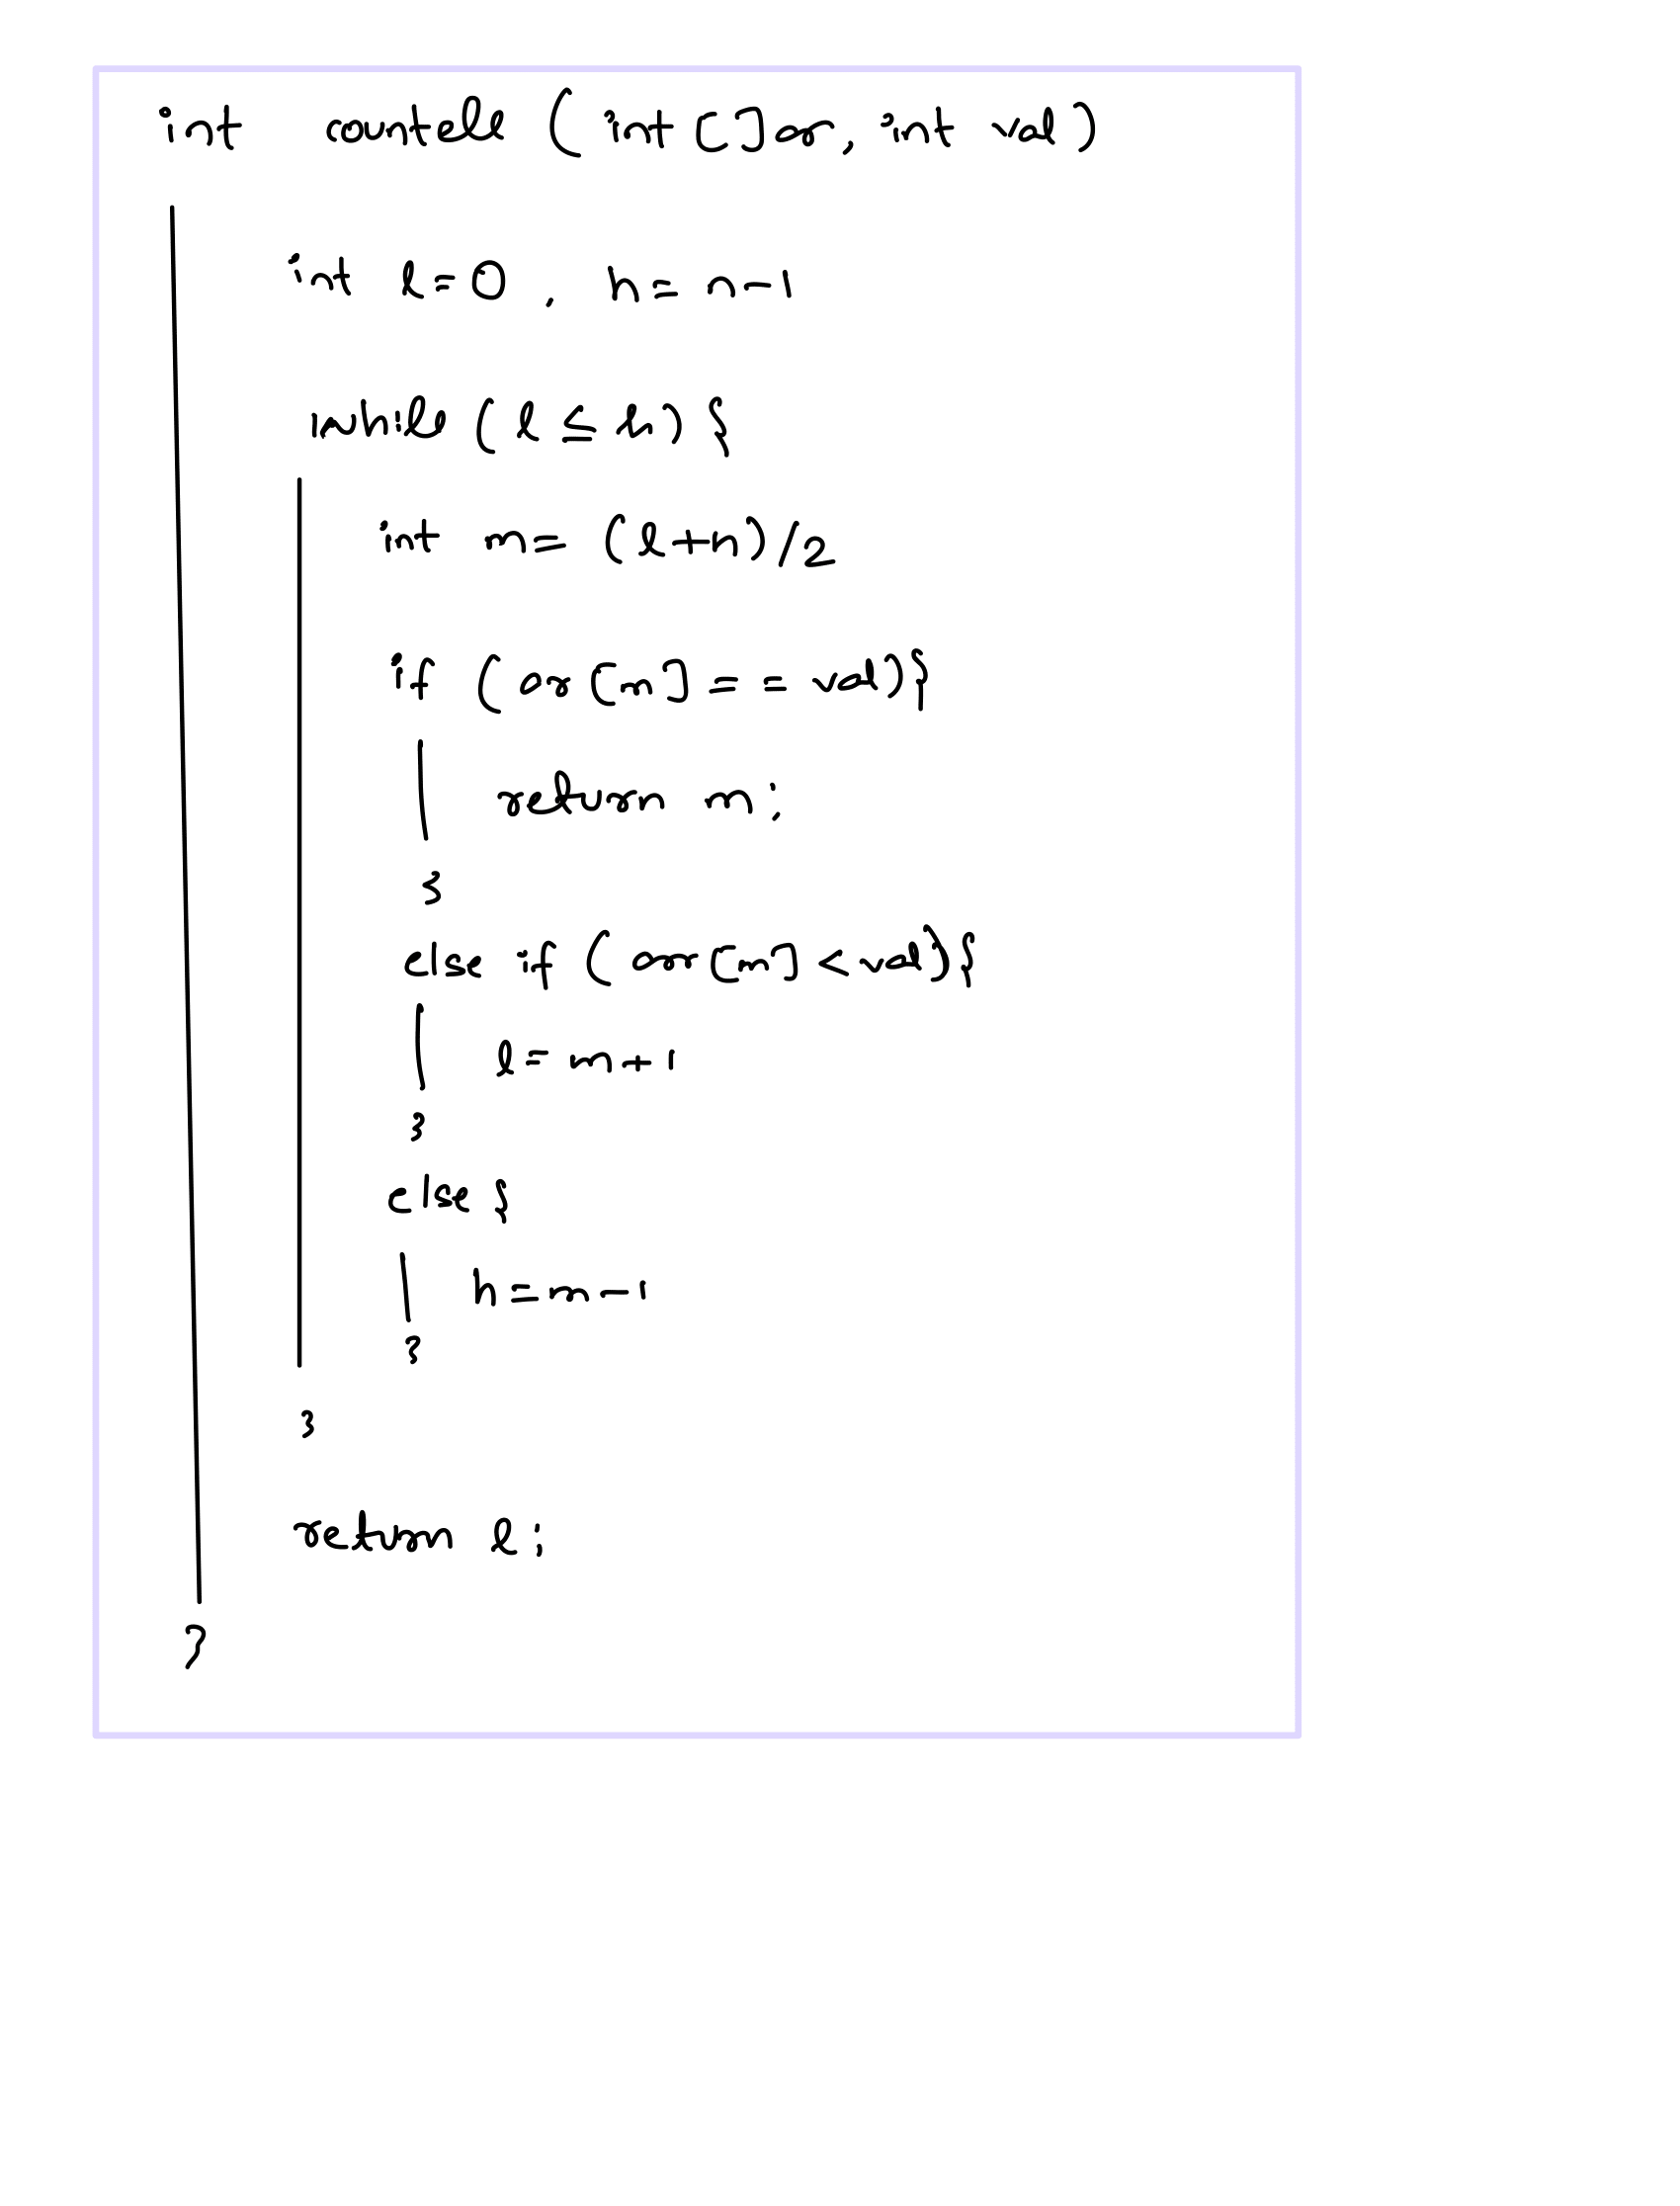 int countele ( int []arr, int val )
int l=0 , h= n-1
while ( l ≤ h) {
int m= (l+h)/2
if ( arr [m] == val) {
return m;
}
else if ( arr[m] < val) {
l= m+1
}
else {
h=m-1
}
}
return l;
}